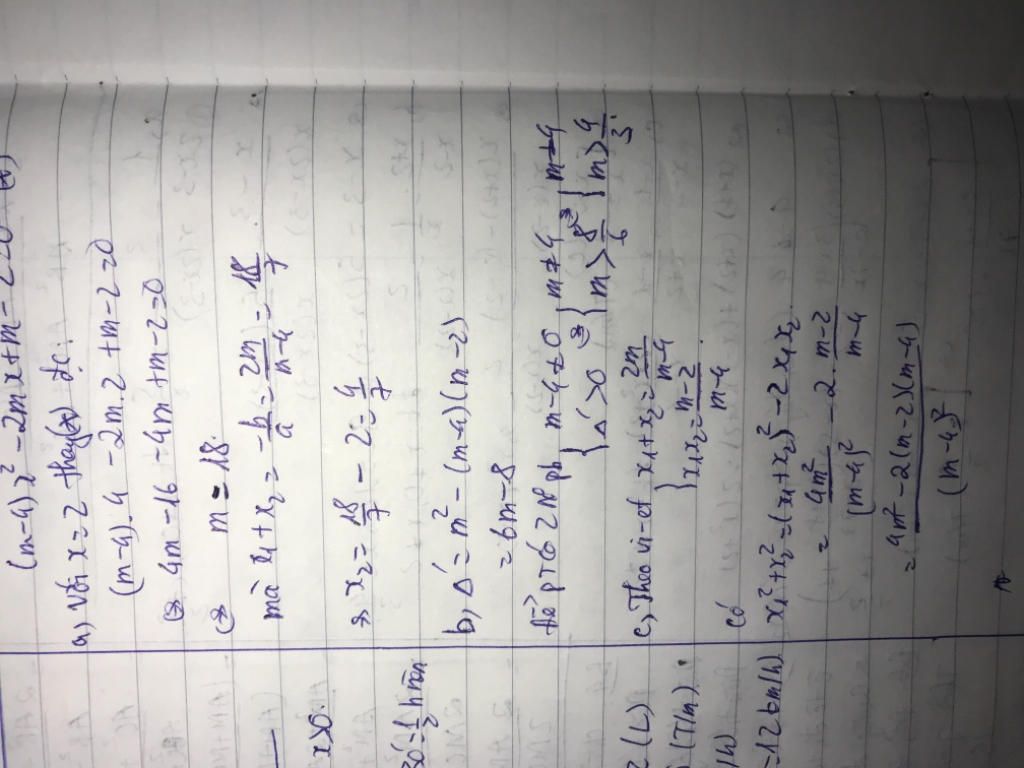 (m-4)x² - 2mx + m - 2 = 0 (*)
a, Với x = 2 thay (*) đc:
(m-4).4 - 2m.2 + m - 2 = 0
⇔ 4m - 16 - 4m + m - 2 = 0
⇔ m = 18.
mà x₁ + x₂ = -b/a = 2m/m-4 = 18/7
⇒ x₂ = 18/7 - 2 = 4/7
b, Δ' = m² - (m-4)(m-2)
= 6m - 8
Để pt có 2 nº pb { m-4 ≠ 0 Δ' > 0 ⇔ { m ≠ 4 m > 8/6 { m ≠ 4 m > 4/3.
c, Theo vi-et { x₁ + x₂ = 2m/m-4 x₁x₂ = m-2/m-4
có
x₁² + x₂² = (x₁ + x₂)² - 2x₁x₂.
= 4m²/(m-4)² - 2. m-2/m-4
= 4m² - 2(m-2)(m-4)/(m-4)²
x>0.
30' = 1/2 h nên
2 (L)
(T/m).
= 12 km/h)